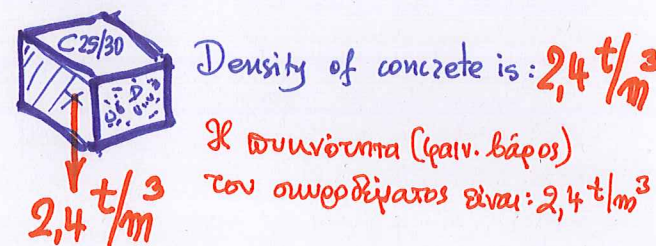 C25/30
Density of concrete is: 2,4 t/m³
Η πυκνότητα (φαιν. βάρος)
του σκυροδέματος είναι: 2,4 t/m³
2,4 t/m³